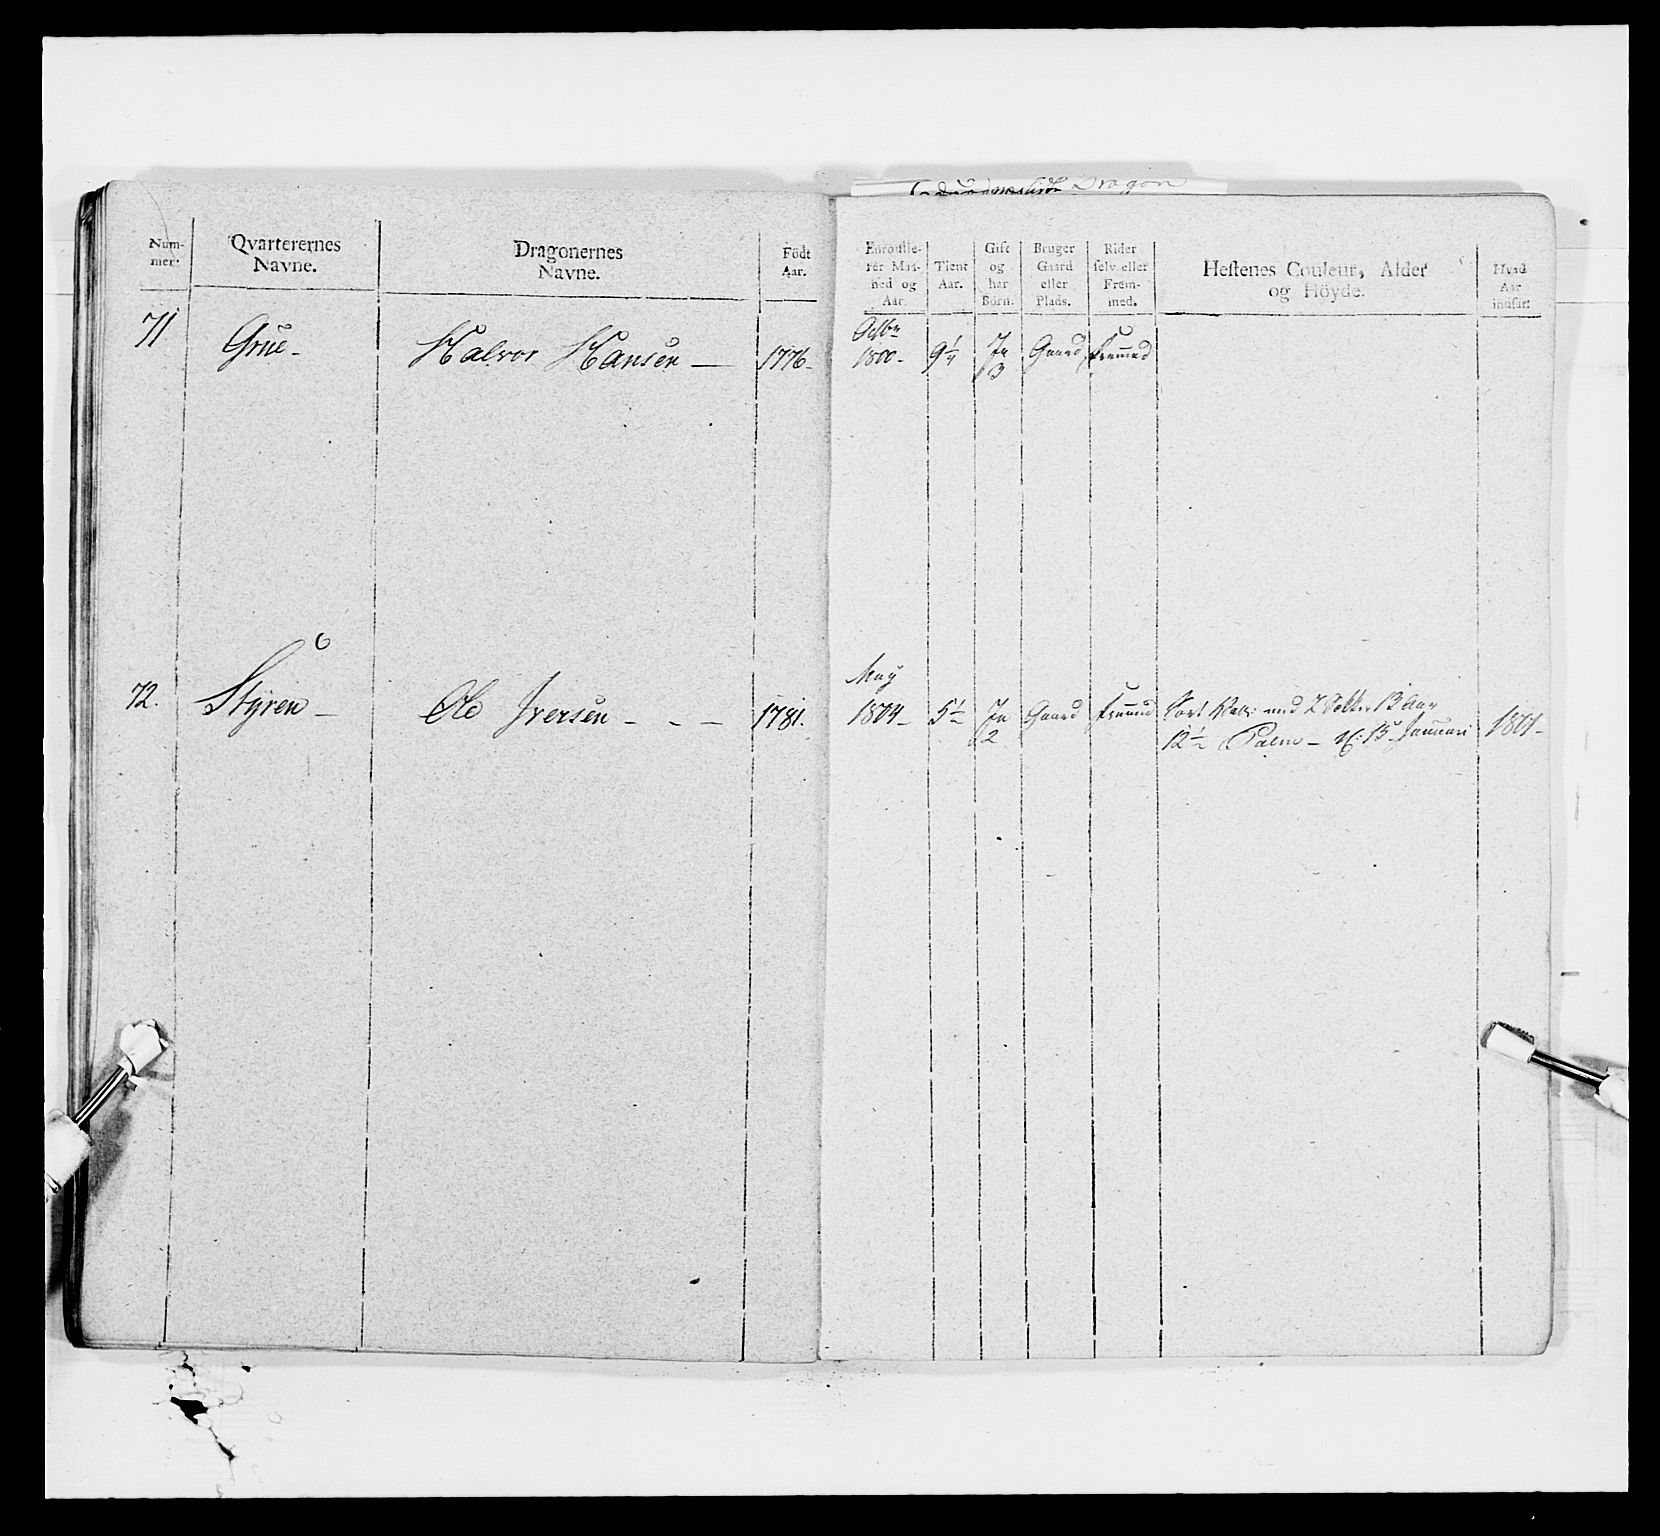 Dragon
Num-
mer.
Qvarterernes
Navne.
Dragonernes
Navne.
Födt
Aar.
Enroulle-
ret Maa-
ned og
Aar.
Tient
Aar.
Gift
og
har
Börn.
Bruger
Gaard
eller
Plads.
Rider
selv eller
Frem-
med.
Hestenes Couleur, Alder
og Höyde.
Hvad
Aar
indsat:
71 Grue - Halvor Hansen — 1776 - Octbr 1800 - 9 1/4 Ja 3 Gaard Fremmed
72. Styren - Ole Iversen - - - 1781. May 1804 - 5 1/2 Ja 2 Gaard Fremmed Sort 2 13 Aar
12 1/2 Palm - 15 Januari 1801 -